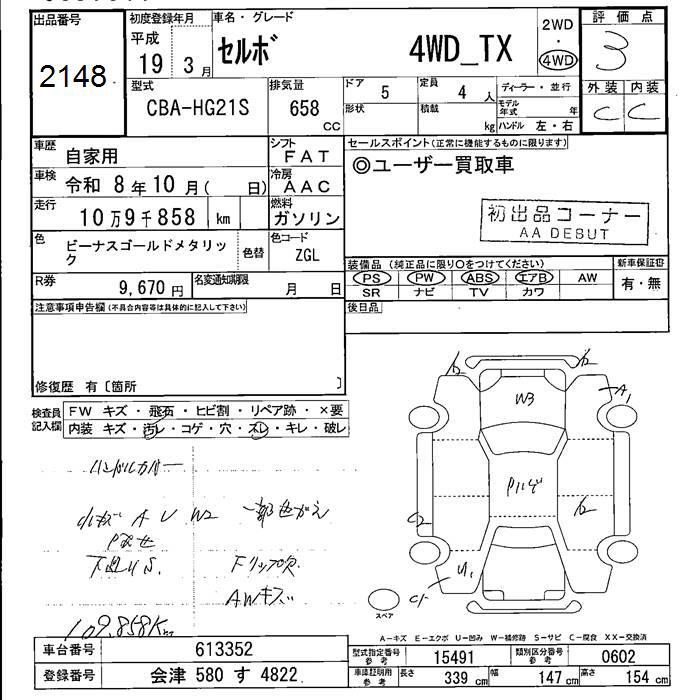 出品番号
2148
初度登録年月
平成
19 3月
車名・グレード
セルボ 4WD_TX
2WD
・
4WD
評価点
3
外装 内装
C C
型式
CBA-HG21S
排気量
658
CC
ドア
5
形状
定員
4 人
積載
kg
ディーラー・並行
モデル年式 年
ハンドル 左・右
車歴
自家用
シフト
FAT
車検
令和 8年10月( 日)
冷房
AAC
走行
10万9千858 km
燃料
ガソリン
色
ビーナスゴールドメタリック
色替
色コード
ZGL
R券
9,670 円
名変通知期限
月 日
セールスポイント(正常に機能するものに限ります)
◎ユーザー買取車
初出品コーナー
AA DEBUT
装備品 (純正品に限り○をつけてください)
PS PW ABS エアB AW
SR ナビ TV カワ
新車保証書
有・無
後日品
注意事項申告欄(不具合内容等は具体的に記入して下さい)
修復歴 有〔箇所 〕
検査員記入欄
FW キズ・飛石・ヒビ割・リペア跡・×要
内装 キズ・汚レ・コゲ・穴・スレ・キレ・破レ
ハンドルカバー
小キズ A U W2 一部色がえ
下廻りS. Fリップ欠
AWキズ
109.858Km
A1
W3
C2
U1
C1
スペア
A−キズ E−エクボ U−凹み W−補修跡 S−サビ C−腐食 XX−交換済
車台番号
613352
登録番号
会津 580 す 4822
型式指定番号
参考
15491
類別区分番号
参考
0602
車庫証明用
参考
長さ
339 cm
幅
147 cm
高さ
154 cm